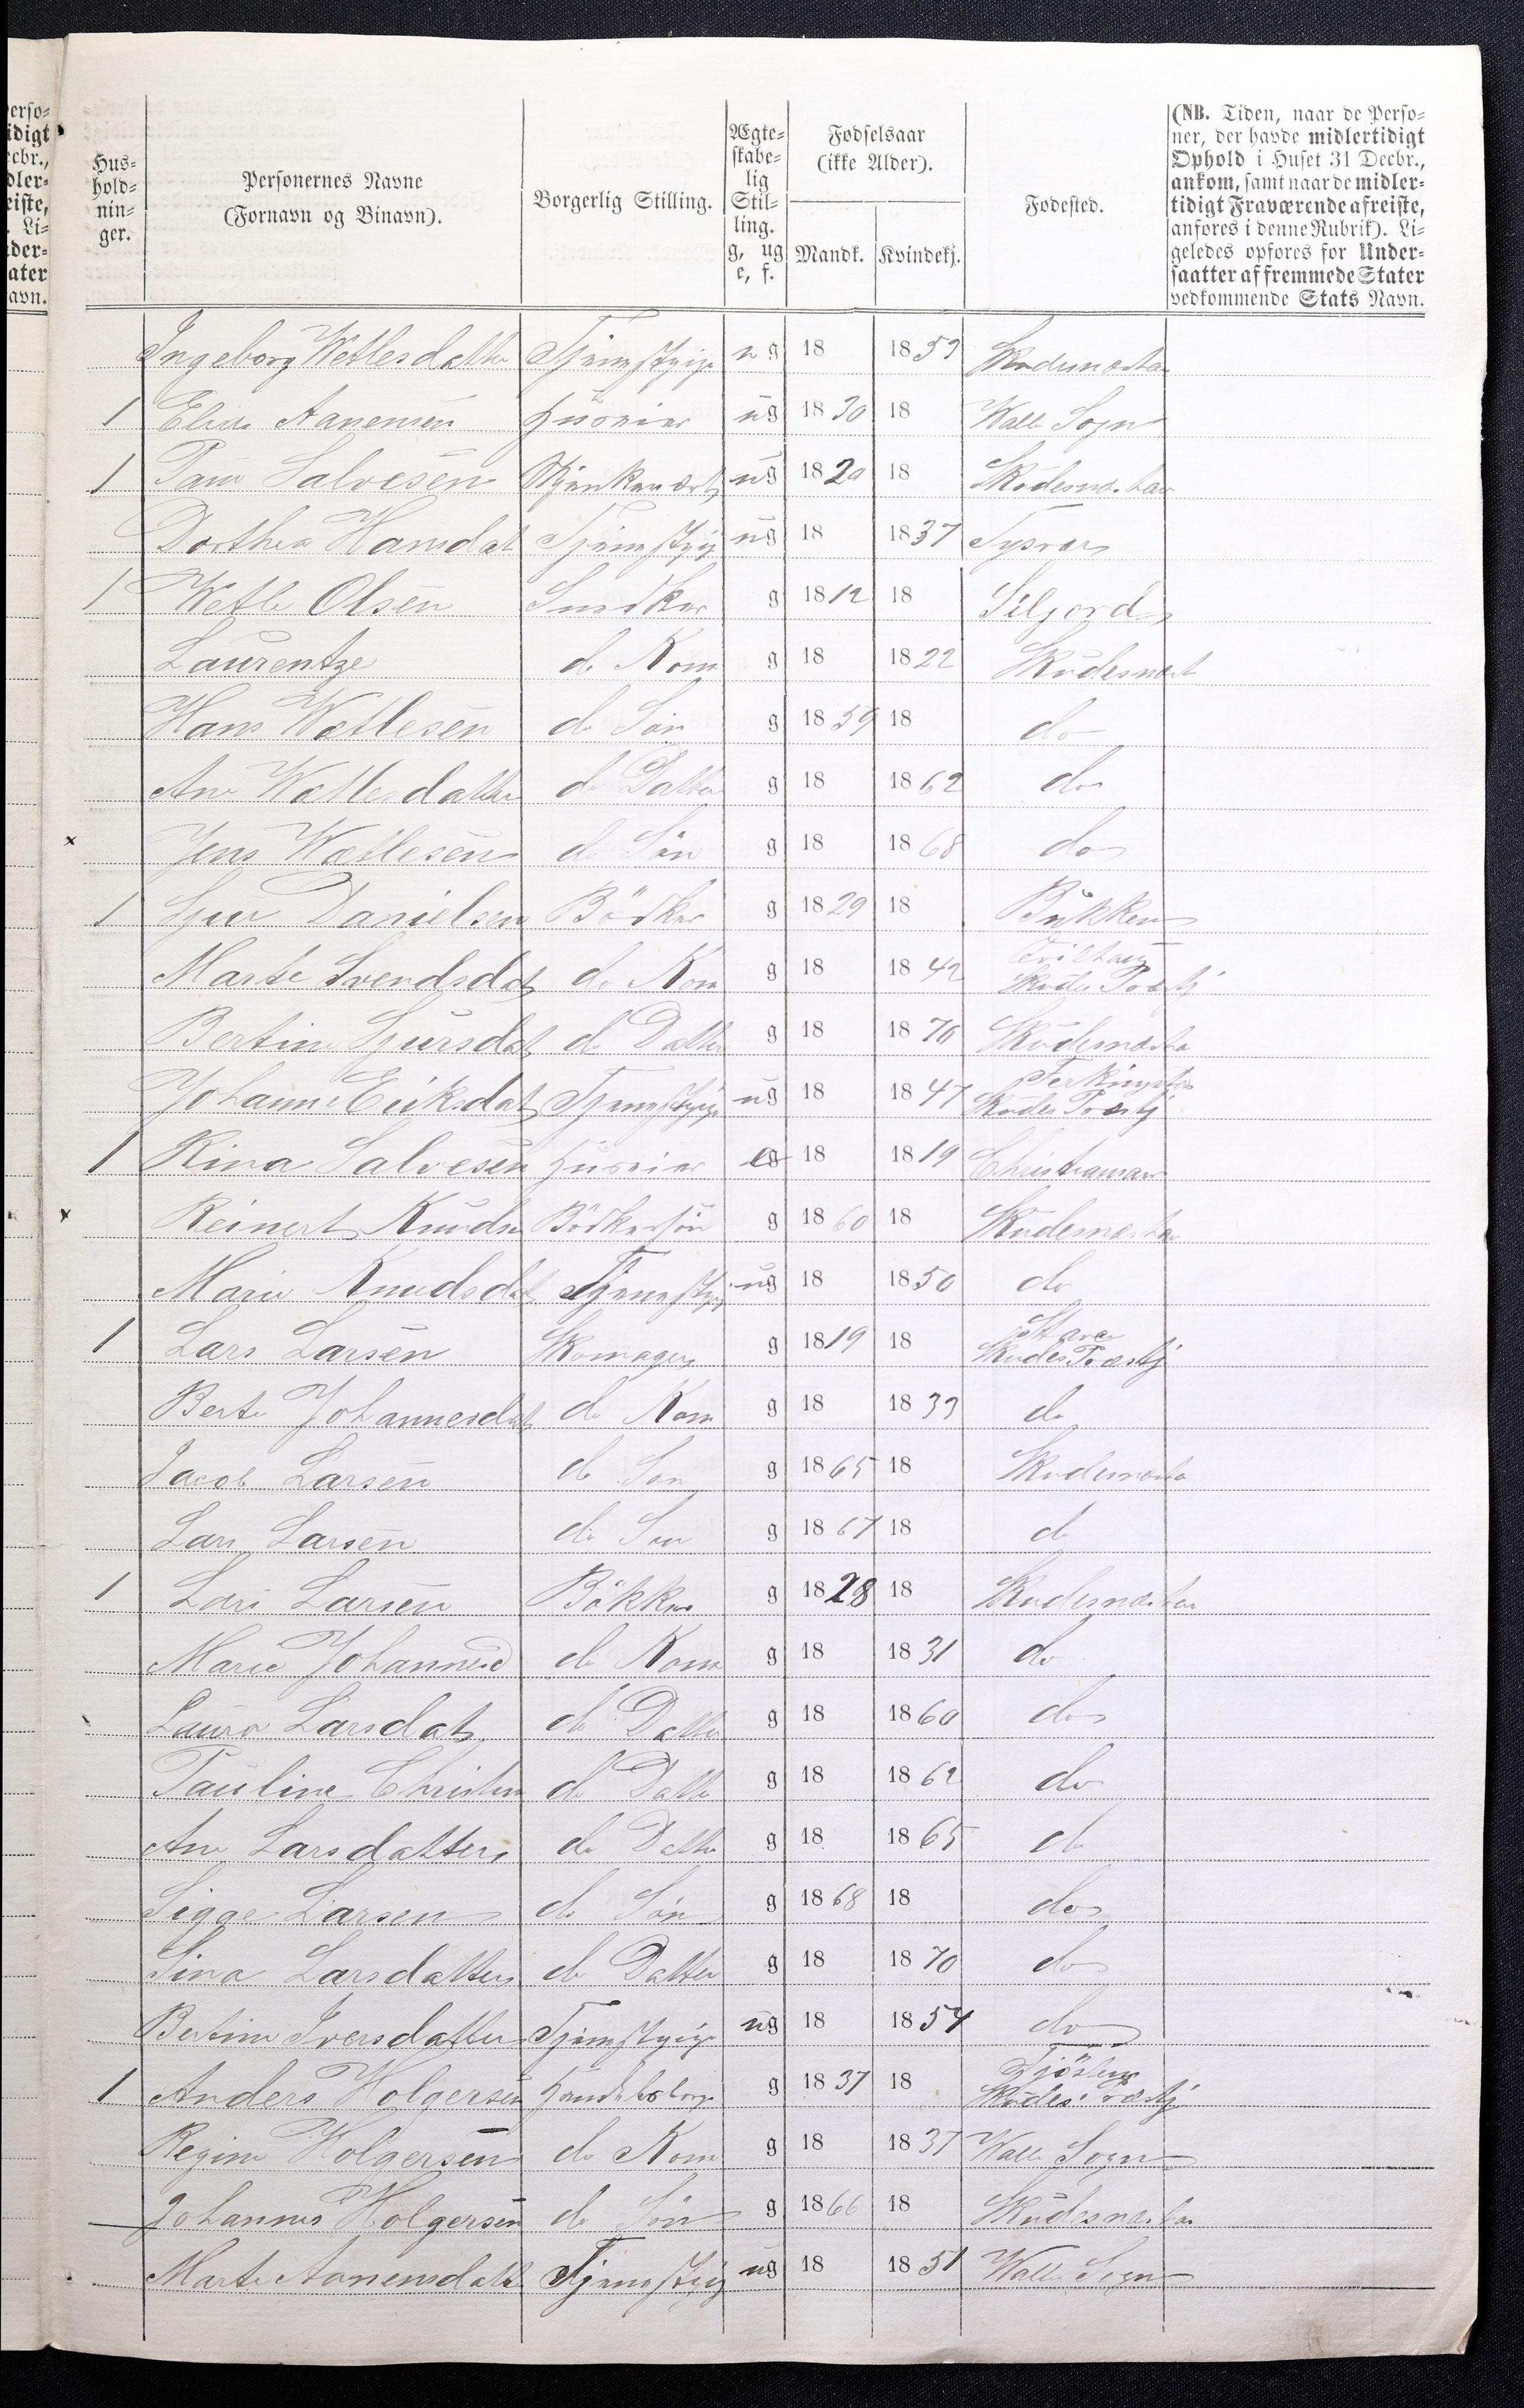 Hus-
hold-
nin-
ger.
Personernes Navne
(Fornavn og Binavn).
Borgerlig Stilling.
Ægte-
skabe-
lig
Stil-
ling.
g, ug
e, f.
Fødselsaar
(ikke Alder).
Mandk. Kvindekj.
Fødested.
(NB. Tiden, naar de Perso-
ner, der havde midlertidigt
Ophold i Huset 31 Decbr.,
ankom, samt naar de midler-
tidigt Fraværende afreiste,
anføres i denne Rubrik). Li-
geledes opføres for Under-
saatter af fremmede Stater
vedkommende Stats Navn.
Ingeborg Wetlesdatter Tjenestpige ug 18 1853 Skudesnæsha
1 Elias Aanensen Huseier ug 1830 18 Walle Sogn
1 Salvesen ug 1820 18 Skudesnæshav
Dorthea Hansdat Tjenestpig ug 18 1837 Tysvær
1 Wetle Olsen Snedker g 1812 18 Siljord
Laurentze do Kone g 18 1822 Skudesnæsh
Hans Wetlesen do Søn g 1859 18 do
Ane Wetlesdatter do Datter g 18 1862 do
x Jens Wetlesen do Søn g 18 1868 do
1 Sjur Danielsen Bödker g 1829 18 Bukken
Marte Svendsdat do Kone g 18 1842 Skudes Præstgj
Bertine Sjursdat do Datter g 18 1870 Skudesnæsha
Johanne Eriksdat Tjenestpige ug 18 1847 Ferkingstad Skudes Præstgj
1 Rina Salvesen Huseier e 18 1819 Christiansan
x Reinert Knuds Bödkersön g 1860 18 Skudesnæsha
Marie Knudsdat Tjenestpig ug 18 1850 do
1 Lars Larsen Skomager g 1819 18 Stave Skudes Præstgj
Berte Johannesdat do Kone g 18 1833 do
Jacob Larsen do Søn g 1865 18 Skudesnæsha
Lars Larsen do Søn g 1867 18 do
1 Lars Larsen Bökker g 1828 18 Skudesnæshav
Marie Johannesd do Kone g 18 1831 do
Laura Larsdat do Datter g 18 1860 do
Pauline Christin do Datter g 18 1862 do
Ane Larsdatter do Datter g 18 1865 do
Sigge Larsen do Søn g 1868 18 do
Sina Larsdatter do Datter g 18 1870 do
Bertine Iversdatter Tjenestpige ug 18 1854 do
1 Anders Holgersen Handelsborger g 1837 18 Skudes Præstgj
Regine Holgersen do Kone g 18 1837 Walle Sogn
Johannes Holgersen do Søn g 1866 18 Skudesnæshav
Marte Aanensdatt Tjenestpig ug 18 1851 Walle Sogn